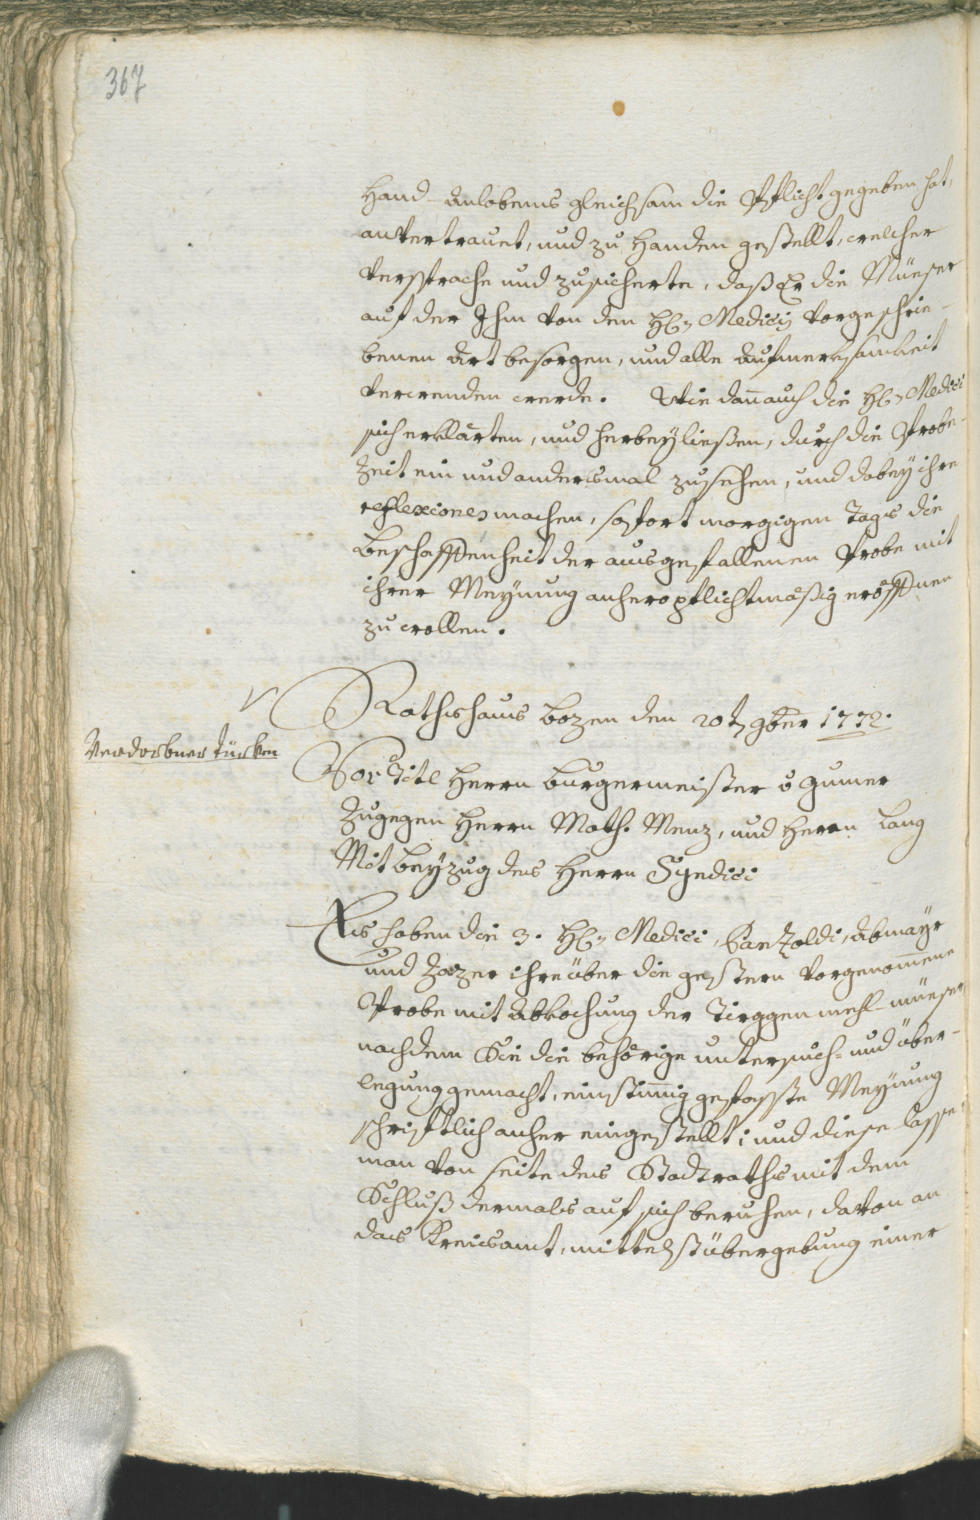 367
Hand-anlobens gleichsam die Pflicht gegeben hat,
anvertrauet, und zu Handen gestellt, welcher
versprache und zusicherte, daß Er die Müeser
auf der Ihm von den H: Medicis vorgeschrie-
benen Art besorgen, und alle Aufmerksamkeit
verwenden werde. Wie dan̄ auch die H: Medici
sich erklärten, und herbeyließen, durch die Probe-
zeit ein und andersmal zusehen, und dabey ihre
reflexiones machen, sofort morgigen Tags die
Beschaffenheit der ausgefallenen Probe mit
ihrer Meynung anhero pflichtmäßig eröffnen
zu wollen.
Rathshaus Bozen den 20t 9ber 1772.
Verdorbner Türken
Vor Titl Herrn Burgermeister v Gumer
Zugegen Herrn Math. Menz, und Herrn Lang
Mit Beyzug des Herrn Syndici
Es haben die 3. H: Medici, Abmayr
und Zozer ihre über die gestern vorgenom̄ene
Probe mit Abkochung der Tirggenmehl-müeser
nachdem Sie die behörige untersuch- und über-
legung gemacht, einstim̄ig gefasste Meynung
schriftlich anher eingestellt; und diese lasse
man von seite des Stadtraths mit dem
Schluß dermals auf sich beruhen, davon an
das Kreisamt, mittelst übergebung einer